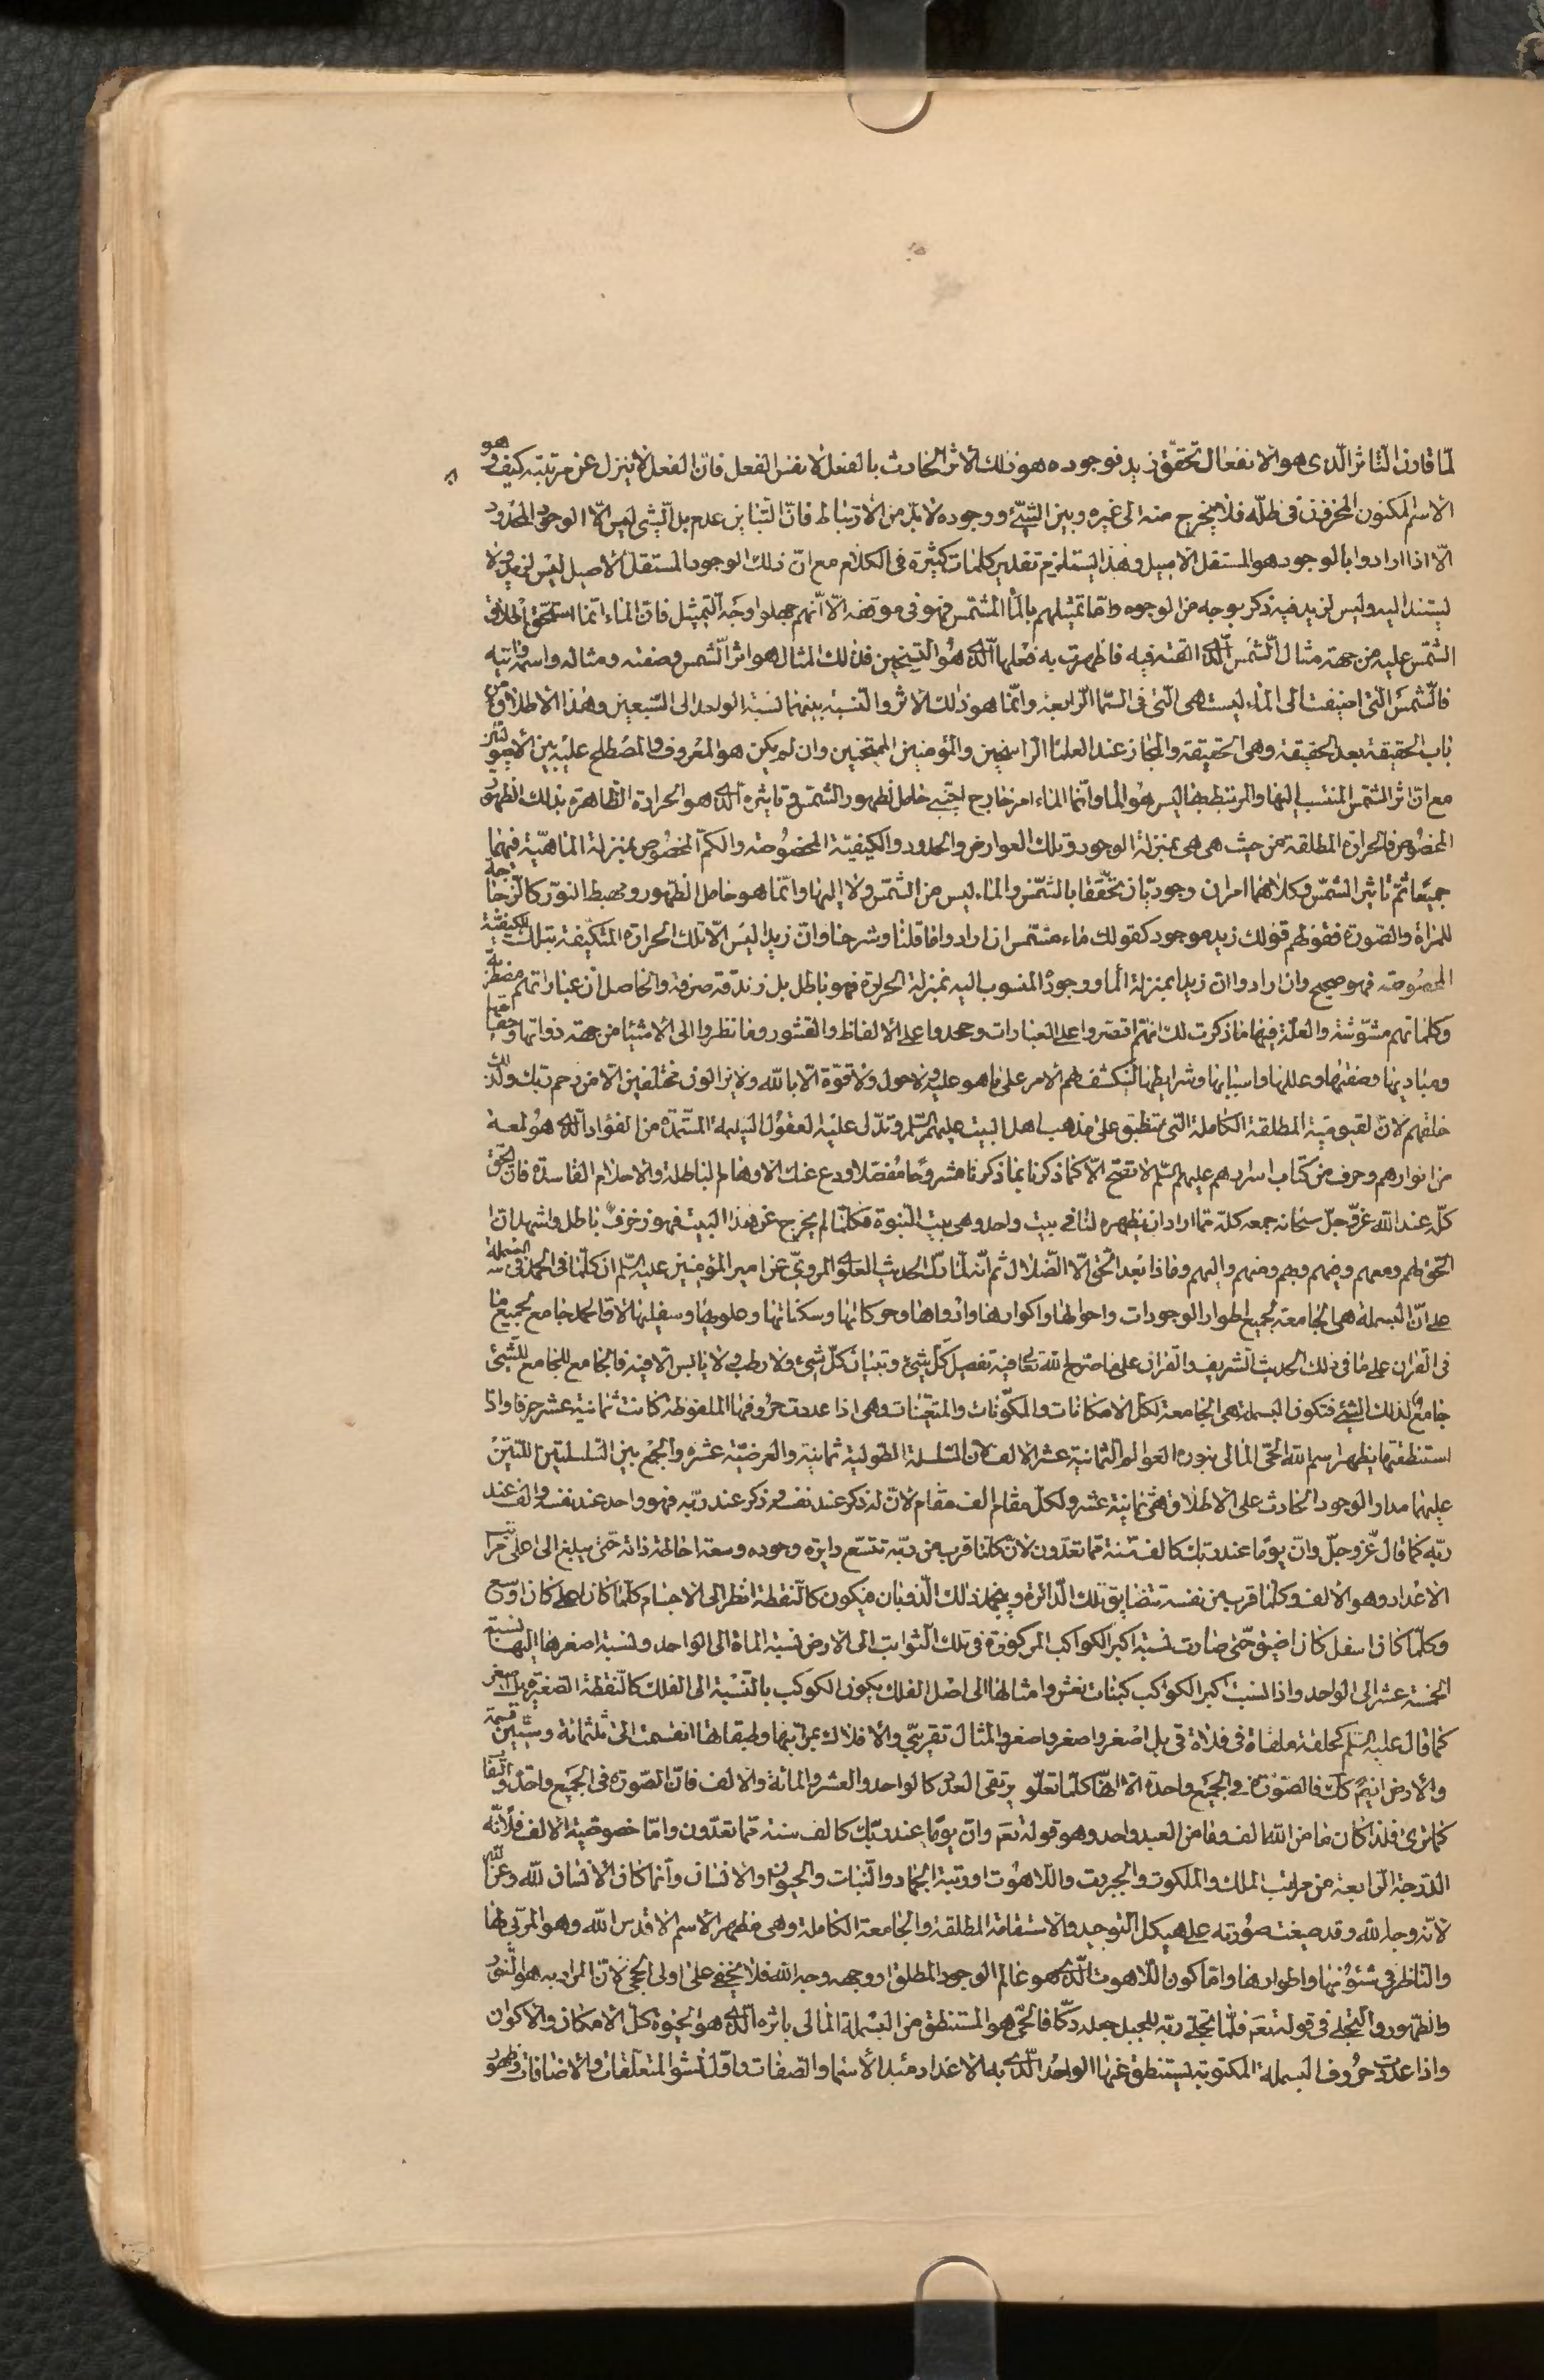 لما قارن التاثر الذى هو الانفعال تحقق زيد فوجوده هو ذلك الاثر الحادث بالفعل لا نفس الفعل فان الفعل لا ينزل عن مرتبته كيف وهو
الاسم المكنون المخزون فى ظله فلا يخرج منه الى غيره وبين الشئ ووجوده لا بد من الارتباط فان التباين عدم بل الشئ ليس الا الوجود المحدود
الا اذا ارادوا بالوجود هو المستقل الاصيل وهذا يستلزم تقدير كلمات كثيرة فى الكلام مع ان ذلك الوجود المستقل الاصيل ليس لزيد ولا
يستند اليه وليس لزيد فيه ذكر بوجه من الوجوه واما تمثيلهم بالماء المشمس فهو فى موقعه الا انهم جهلوا وجه التمثيل فان الماء انما استحق اطلاق
الشمس عليه من جهة مثال الشمس الذى القته فيه فاظهرت به فعلها الذى هو التسخين فذلك المثال هو اثر الشمس وصفته ومثاله واسمه وايته
فالشمس التى اضيفت الى الماء ليست هى التى فى السماء الرابعة وانما هو ذلك الاثر والنسبة بينهما نسبة الواحد الى السبعين وهذا الاطلاق من
باب الحقيقة بعد الحقيقة وهى الحقيقة والمجاز عند العلماء الراسخين والمؤمنين الممتحنين وان لم يكن هو المعروف والمصطلح عليه بين الاصوليين
مع ان اثر الشمس المنتسب اليها والمرتبط بها ليس هو الماء وانما الماء امر خارج اجنبى حامل لظهور الشمس وتاثيره الذى هو الحرارة الظاهرة بذلك الظهور
المخصوص فالحرارة المطلقة من حيث هى هى بمنزلة الوجود وتلك العوارض والحدود والكيفية المخصوصة والكم المخصوص بمنزلة الماهية فهما
جميعا ثم تاثير الشمس وكلاهما امران وجوديان تحققا بالشمس والماء ليس من الشمس ولا اليها وانما هو حامل الظهور ومهبط النور كالزجاجة
للمراة والصورة فقولهم قولك زيد موجود كقولك ماء مشمس ان ارادوا ما قلنا وشرحنا وان زيدا ليس الا تلك الحرارة المتكيفة بتلك الكيفية
المخصوصة فهو صحيح وان ارادوا ان زيدا بمنزلة الماء ووجوده المنسوب اليه بمنزلة الحرارة فهو باطل بل زندقة صرفة والحاصل ان عباراتهم مضطربة
وكلماتهم مشوشة والعلة فيها ما ذكرت لك انهم اقتصروا على العبارات وجمدوا على الالفاظ والقشور وما نظروا الى الاشياء من جهة ذواتها وحقايقها
ومباديها وصفتها وعللها واسبابها وشرايطها لينكشف لهم الامر على ما هو عليه ولا حول ولا قوة الا بالله ولا يزالون مختلفين الا من رحم ربك ولذلك
خلقهم لان القيومية المطلقة الكاملة التى تنطبق على مذهب اهل البيت عليهم السلم وتدل عليه العقول السليمة المستمدة من الفؤاد الذى هو لمعة
من انوارهم وحرف من كتاب اسرارهم عليهم السلم لا تصح الا كما ذكرنا بما ذكرنا مشروحا مفصلا ودع عنك الاوهام الباطلة والاحلام الفاسدة فان الحق
كله عند الله عز و جل سبحانه جمعه كله مما اراد ان يظهره لنا فى بيت واحد وهى بيت النبوة فكلما لم يخرج عن هذا البيت فهو زخرف باطل واشهد ان
الحق لهم ومعهم وفيهم وبهم ومنهم واليهم وماذا بعد الحق الا الضلال ثم انه لما دل الحديث العلوى المروى عن امير المؤمنين عليه السلم ان كلما فى الحمد فى البسملة
على ان البسملة هى الجامعة لجميع اطوار الوجودات واحوالها واكوارها وادوارها وحركاتها وسكناتها وعلويها وسفليها لان الحمد جامع لجميع ما
فى القران على ما فى ذلك الحديث الشريف والقران على ما صرح الله تعالى فيه تفصيل كل شئ وتبيان كل شئ ولا رطب ولا يابس الا فيه فالجامع للجامع للشئ
جامع لذلك الشئ فتكون البسملة هى الجامعة لكل الامكانات والمكونات والمتعينات وهى اذا عددت حروفها الملفوظة كانت ثمانية عشر حرفا واذا
استنطقتها يظهر اسم الله الحى المالى بنوره العوالم الثمانية عشر الالف لان السلسلة الطولية ثمانية والعرضية عشرة والجمع بين السلسلتين اللتين
عليهما مدار الوجود الحادث على الاطلاق هى ثمانية عشر ولكل مقام الف مقام لان له ذكر عند نفسه وذكر عند ربه فهو واحد عند نفسه والف عند
ربه كما قال عز وجل وان يوما عند ربك كالف سنة مما تعدون لانه كلما قرب من ربه تتسع دايرة وجوده وسعة احاطة ذاته حتى يبلغ الى اعلى مراتب
الاعداد وهو الالف وكلما قرب من نفسه تتضايق تلك الدائرة وينجمد ذلك الذوبان فيكون كالنقطة انظر الى الاجسام كلما كان اعلى كان اوسع
وكلما كان اسفل كان اضيق حتى صارت نسبة اكبر الكواكب المركوزة فى تلك الثوابت الى الارض نسبة الماة الى الواحد ونسبة اصغرها اليها نسبة
الخمسة عشر الى الواحد واذا نسبت اكبر الكواكب كبنات نعش وامثالها الى اصل الفلك يكون الكوكب بالنسبة الى الفلك كالنقطة الصغيرة بل اصغر
كما قال عليه السلم كحلقة ملقاة فى فلاة قى بل اصغر واصغر واصغر والمثال تقريبى والافلاك بمراتبها وطبقاتها انقسمت الى ثلثمائة وستين قسمة
والارض ايضا كذلك فالصورة فى الجميع واحدة الا انها كلما تعلو يرتقى العدد كالواحد والعشر والمائة والالف فان الصورة فى الجميع واحد والف
كما ترى فلذا كان ما من الله الف وما من العبد واحد وهو قوله تعالى وان يوما عند ربك كالف سنة مما تعدون واما خصوصية الالف فلانه
الدرجة الرابعة من مراتب الملك والملكوت والجبروت واللاهوت او رتبة الجماد والنبات والحيوان والانسان وانما كان الانسان لله وعن الله
لانه وجه الله وقد صيغت صورته على هيكل التوحيد والاستقامة المطلقة والجامعة الكاملة وهى مظهر الاسم الاقدس الله وهو المربى لها
والناظر فى شئونها واطوارها واما كون اللاهوت الذى هو عالم الوجود المطلق او وجهه وجه الله فلا يخفى على اولى الحجى لان المراد به هو النور
والظهور والتجلى فى قوله تعالى فلما تجلى ربه للجبل جعله دكا فالحى هو المستنطق من البسملة المالى باثره الذى هو الحيوة كل الامكان والاكوان
واذا عددت حروف البسملة المكتوبة يستنطق عنها الواحد الذى به الاعداد مبدا الاسماء والصفات واقل نشو المتعلقات والاضافات وظهور